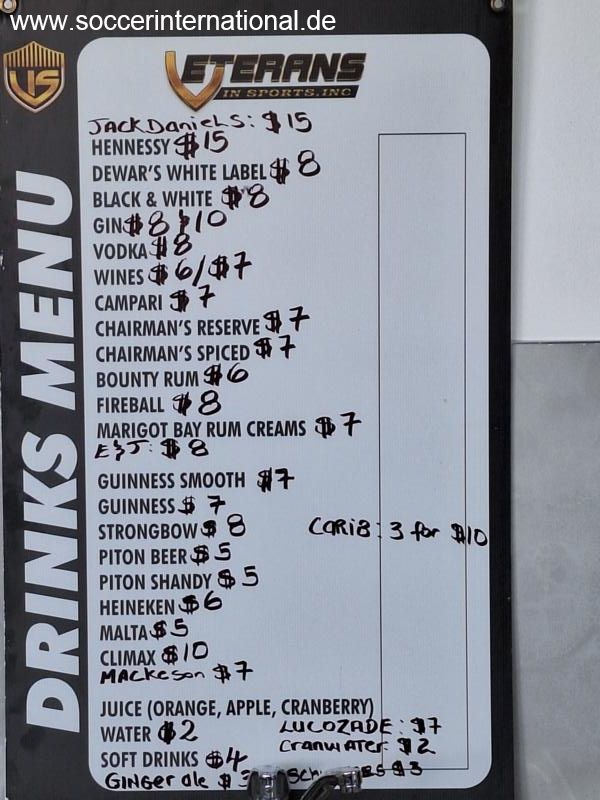 www.soccerinternational.de
VS
VETERANS
IN SPORTS.INC
DRINKS MENU
JACK DANIELS: $15
HENNESSY $15
DEWAR'S WHITE LABEL $8
BLACK & WHITE $8
GIN $8 $10
VODKA $8
WINES $6/$7
CAMPARI $7
CHAIRMAN'S RESERVE $7
CHAIRMAN'S SPICED $7
BOUNTY RUM $6
FIREBALL $8
MARIGOT BAY RUM CREAMS $7
E&J: $8
GUINNESS SMOOTH $7
GUINNESS $7
STRONGBOW $8 CARIB: 3 for $10
PITON BEER $5
PITON SHANDY $5
HEINEKEN $6
MALTA $5
CLIMAX $10
MACKESON $7
JUICE (ORANGE, APPLE, CRANBERRY)
WATER $2 LUCOZADE: $7
SOFT DRINKS $4 CranWater $2
GINGER ale $3 $3